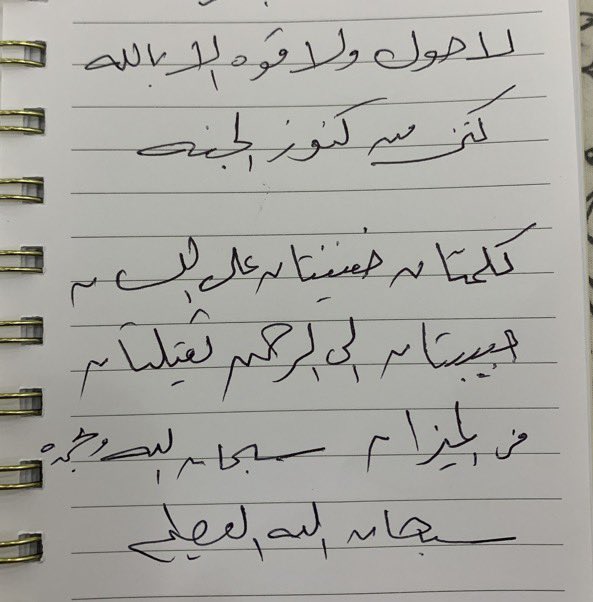 لا حول ولا قوه إلا بالله
كنز من كنوز الجنه
كلمتان خفيفتان على اللسان
حبيبتان الى الرحمن ثقيلتان
في الميزان سبحان الله وبحمده
سبحان الله العظيم